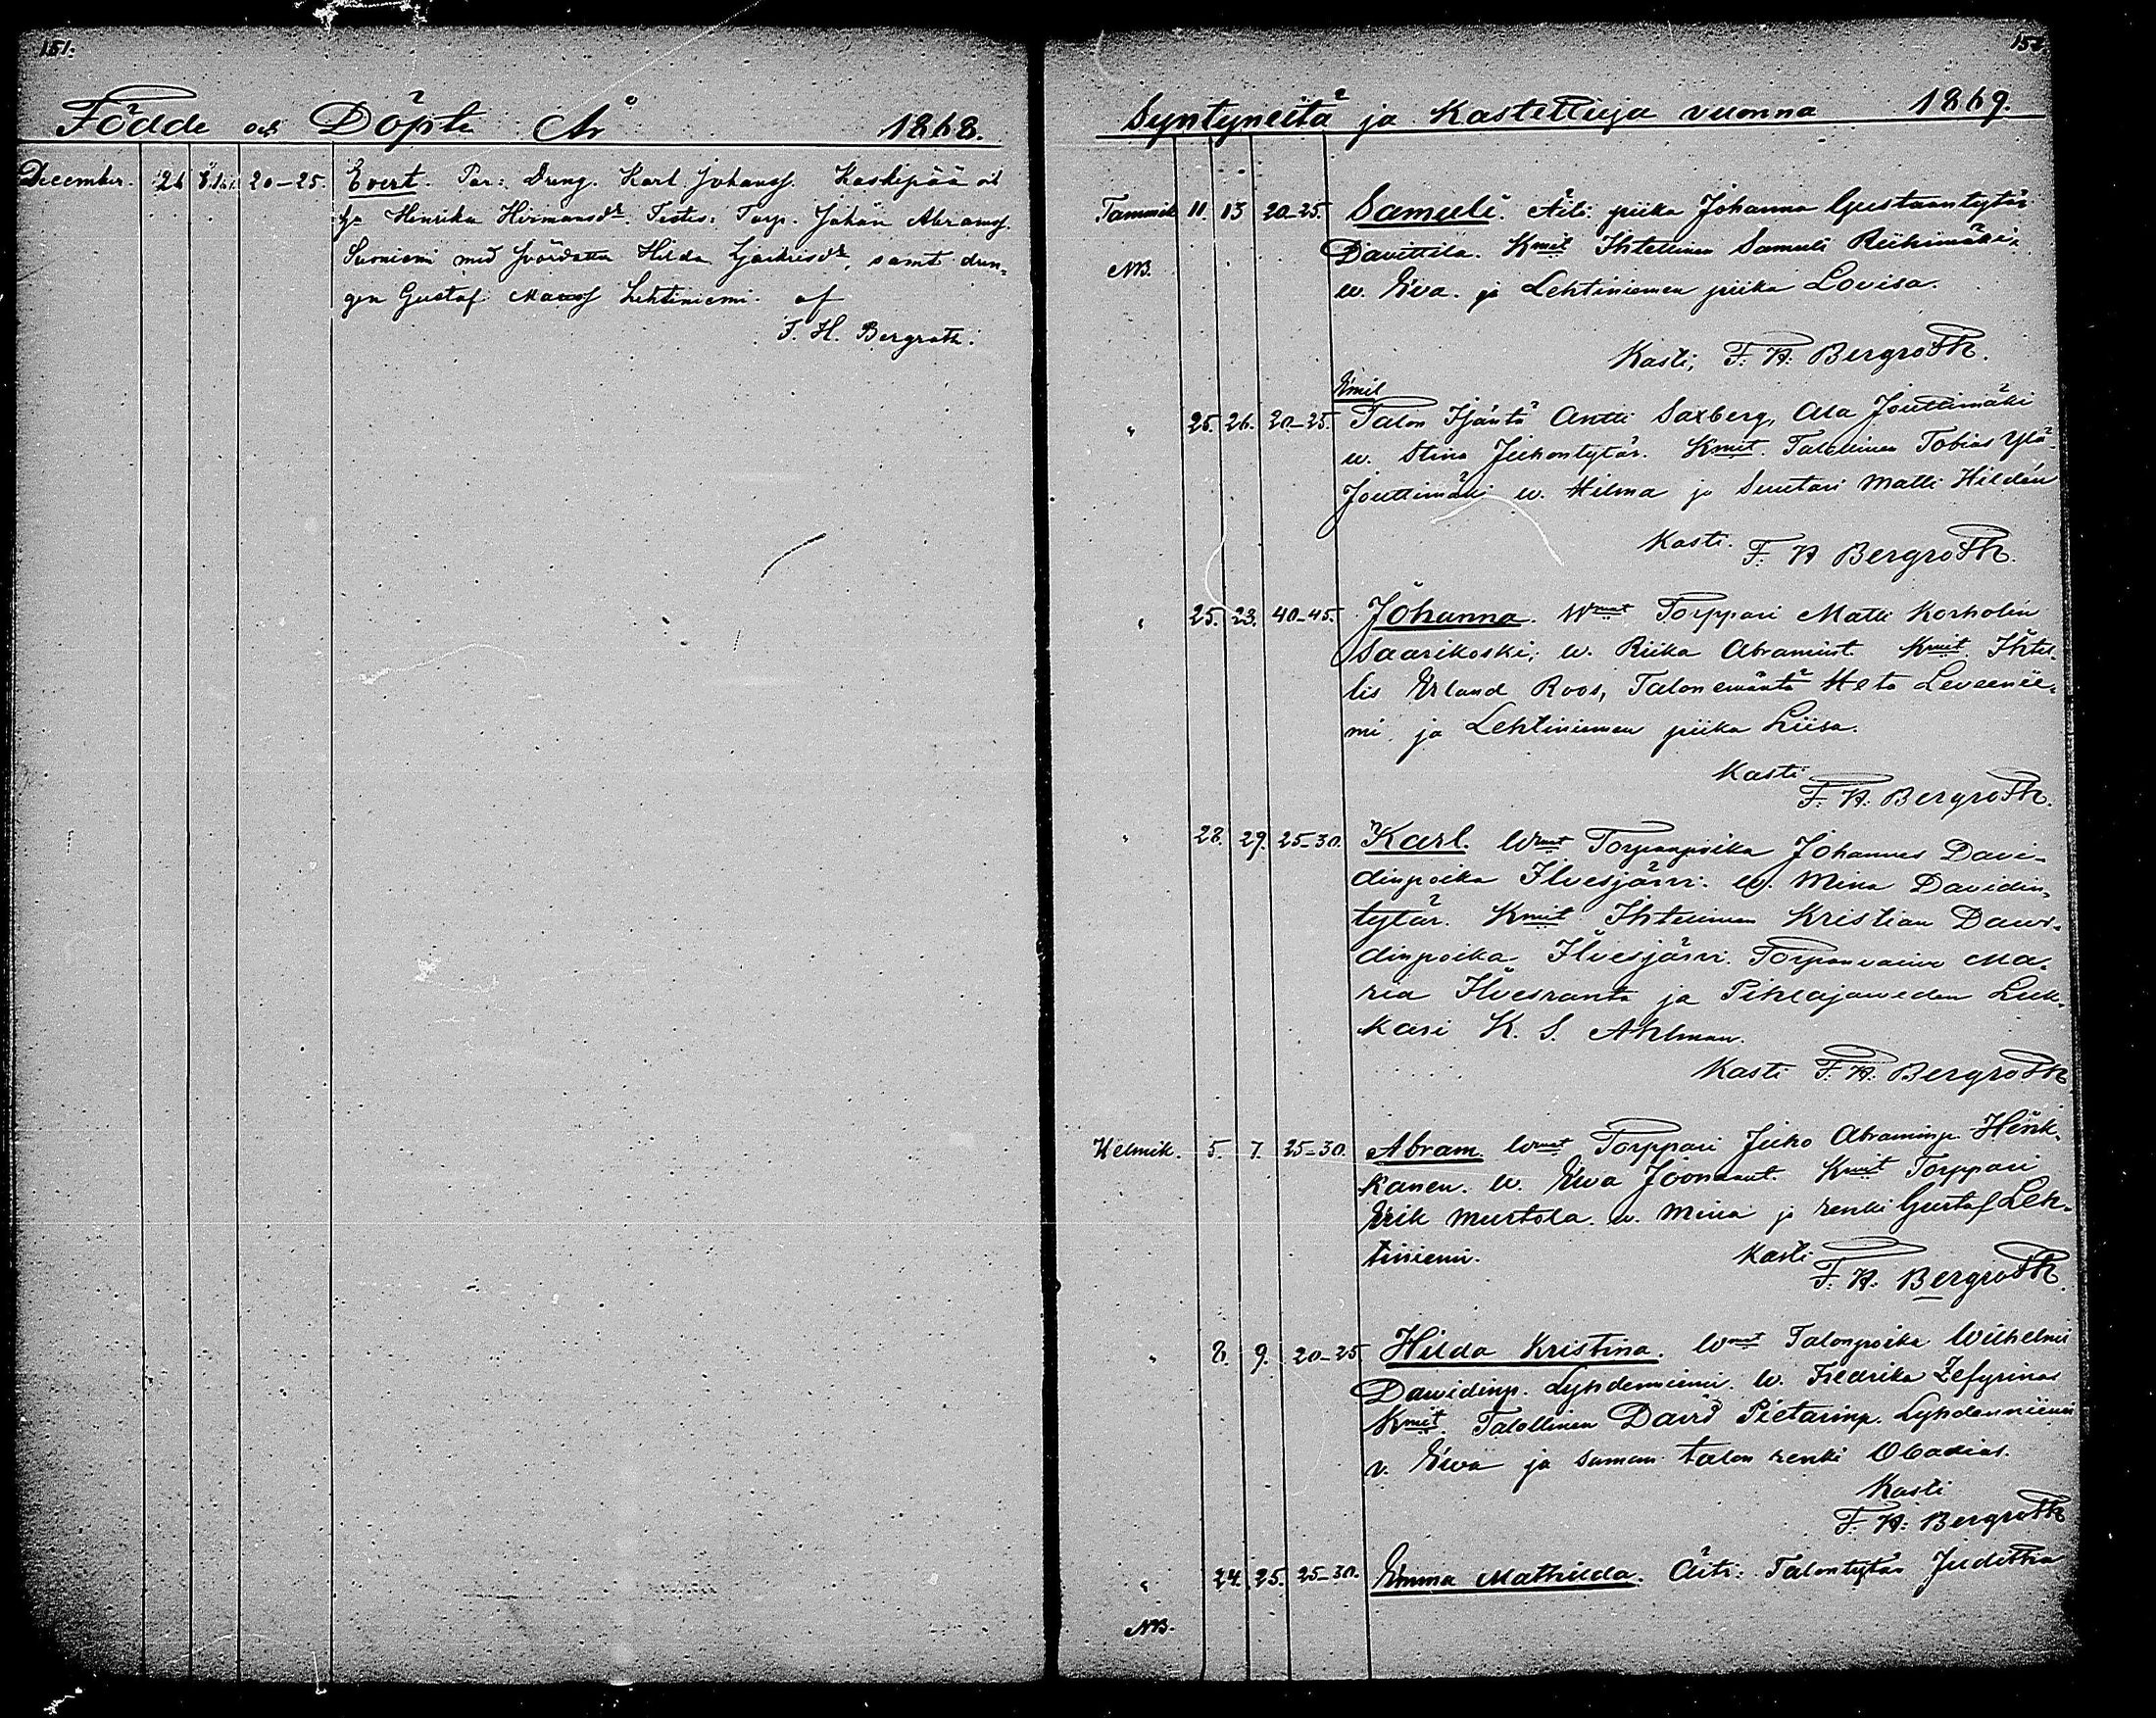 151.
Födde och Döpte År 1868.
December. 26 20-25. Evert. Par: Dreng. Karl Johanss. Koskipää och
h. Henrika Hermansdr. Testes: Torp. Johan Abramss.
Suoniemi med hustru Hilda samt dren-
gen Gustaf Lehtiniemi. af
F. H. Bergroth.
152.
Syntyneitä ja Kastettuja vuonna 1869.
Tammik. 11. 13 20-25. Samuli. Äiti: piika Johanna Gustaantytär
NB. Davittila. Kmit Ihtellinen Samuli Riihimäki,
w. Ewa. ja Lehtiniemen piika Lovisa.
Kasti, F. H. Bergroth.
Emil
" 25. 26. 20-25. Talon Isäntä Antti Saxberg, Ala Jouttimäki
w. Stina Juhontytär. Kmit. Talollinen Tobias Ylä-
Jouttimäki w. Hilma ja Suutari Matti Hildén
Kasti. F. H Bergroth.
" 25. 23. 40-45. Johanna. Wmat Torppari Matti Korholin
Saarikoski; w. Riika Abramint. Kmit Ihtel-
lis Erland Roos, Talon emäntä Heta Leveenie-
mi, ja Lehtiniemen piika Liisa.
Kasti
F. H. Bergroth.
" 28. 29. 25-30. Karl. Wmat Torpanpoika Johannes Davi-
dinpoika Ilvesjärvi. w. Mina Davidin-
tytär. Kmit Ihtellinen Kristian Davi-
dinpoika Ilvesjärvi. Torpanvaimo Ma-
ria Ilvesranta ja Pihlajaweden Luk-
kari K. S. Ahlman.
Kasti F. H. Bergroth
Helmik. 5. 7. 25-30. Abram. Wmat Torppari Juho Abraminp. Henk-
kanen. w. Ewa Joonaant. Kmit Torppari
Erik Murtola. w. Miina ja renki Gustaf Leh-
tiniemi. Kasti
F. H. Bergroth.
" 8. 9. 20-25 Hilda Kristina. Wmat Talonpoika Wilhelmi
Dawidinp. Lyhdenniemi. w. Fredrika Zefyrinas
Kmit. Talollinen David Pietarinp. Lyhdenniemi
v. Ewa ja saman talon renki Obadias.
Kasti
F. H. Bergroth
" 24. 25. 25-30. Emma Mathilda. Äiti: Talontytär Judittha
NB.